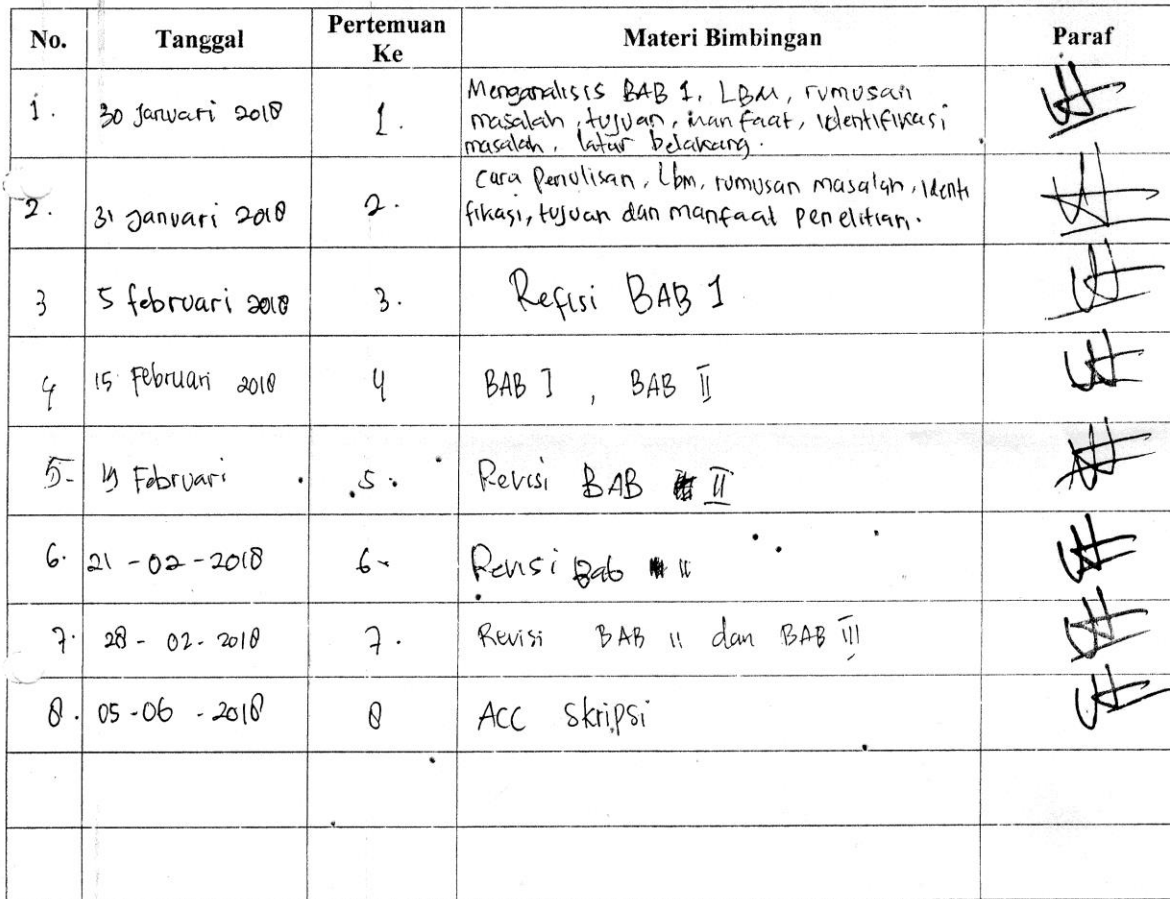 No. Tanggal Pertemuan Ke Materi Bimbingan Paraf
1. 30 Januari 2018 1. Menganalisis BAB 1, LBM, rumusan
masalah, tujuan, manfaat, identifikasi
masalah, latar belakang.
2. 31 Januari 2018 2. Cara Penulisan, Lbm, rumusan masalah, identi
fikasi, tujuan dan manfaat penelitian.
3 5 februari 2018 3. Refisi BAB 1
4 15 Februari 2018 4 BAB I , BAB II
5- 19 Februari 5. Revisi BAB II
6. 21 -02 -2018 6- Revisi Bab II
7. 28 - 02 - 2018 7. Revisi BAB II dan BAB III
8. 05 -06 - 2018 8 ACC Skripsi